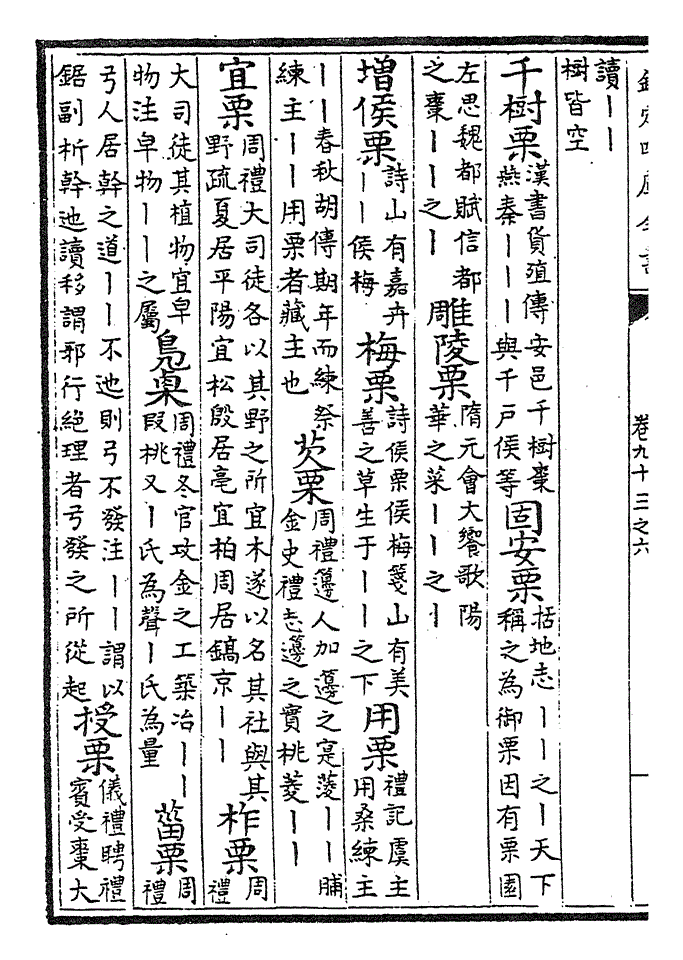 欽定四庫全書
卷九十三之六
讀丨丨
樹皆空
千樹栗
漢書貨殖傳安邑千樹棗
燕秦丨丨丨與千戶侯等
固安栗
括地志丨丨之丨天下
稱之為御栗因有栗園
左思魏都賦信都
之棗丨丨之丨
雕陵栗
隋元會大饗歌陽
華之菜丨丨之丨
增侯栗
詩山有嘉卉
丨丨侯梅
梅栗
詩侯栗侯梅箋山有美
善之草生于丨丨之下
用栗
禮記虞主
用桑練主
丨丨春秋胡傳期年而練祭
練主丨丨用栗者藏主也
芡栗
周禮籩人加籩之寔蔆丨丨脯
金史禮志籩之實桃菱丨丨
宜栗
周禮大司徒各以其野之所宜木遂以名其社與其
野疏夏居平陽宜松殷居亳宜柏周居鎬京丨丨
柞栗
周
禮
大司徒其植物宜皁
物注皁物丨丨之屬
鳧㮚
周禮冬官攻金之工築冶丨丨
段桃又丨氏為聲丨氏為量
菑栗
周
禮
弓人居幹之道丨丨不迆則弓不發注丨丨謂以
鋸副析幹迆讀移謂邪行絕理者弓發之所從起
授栗
儀禮聘禮
賓受棗大